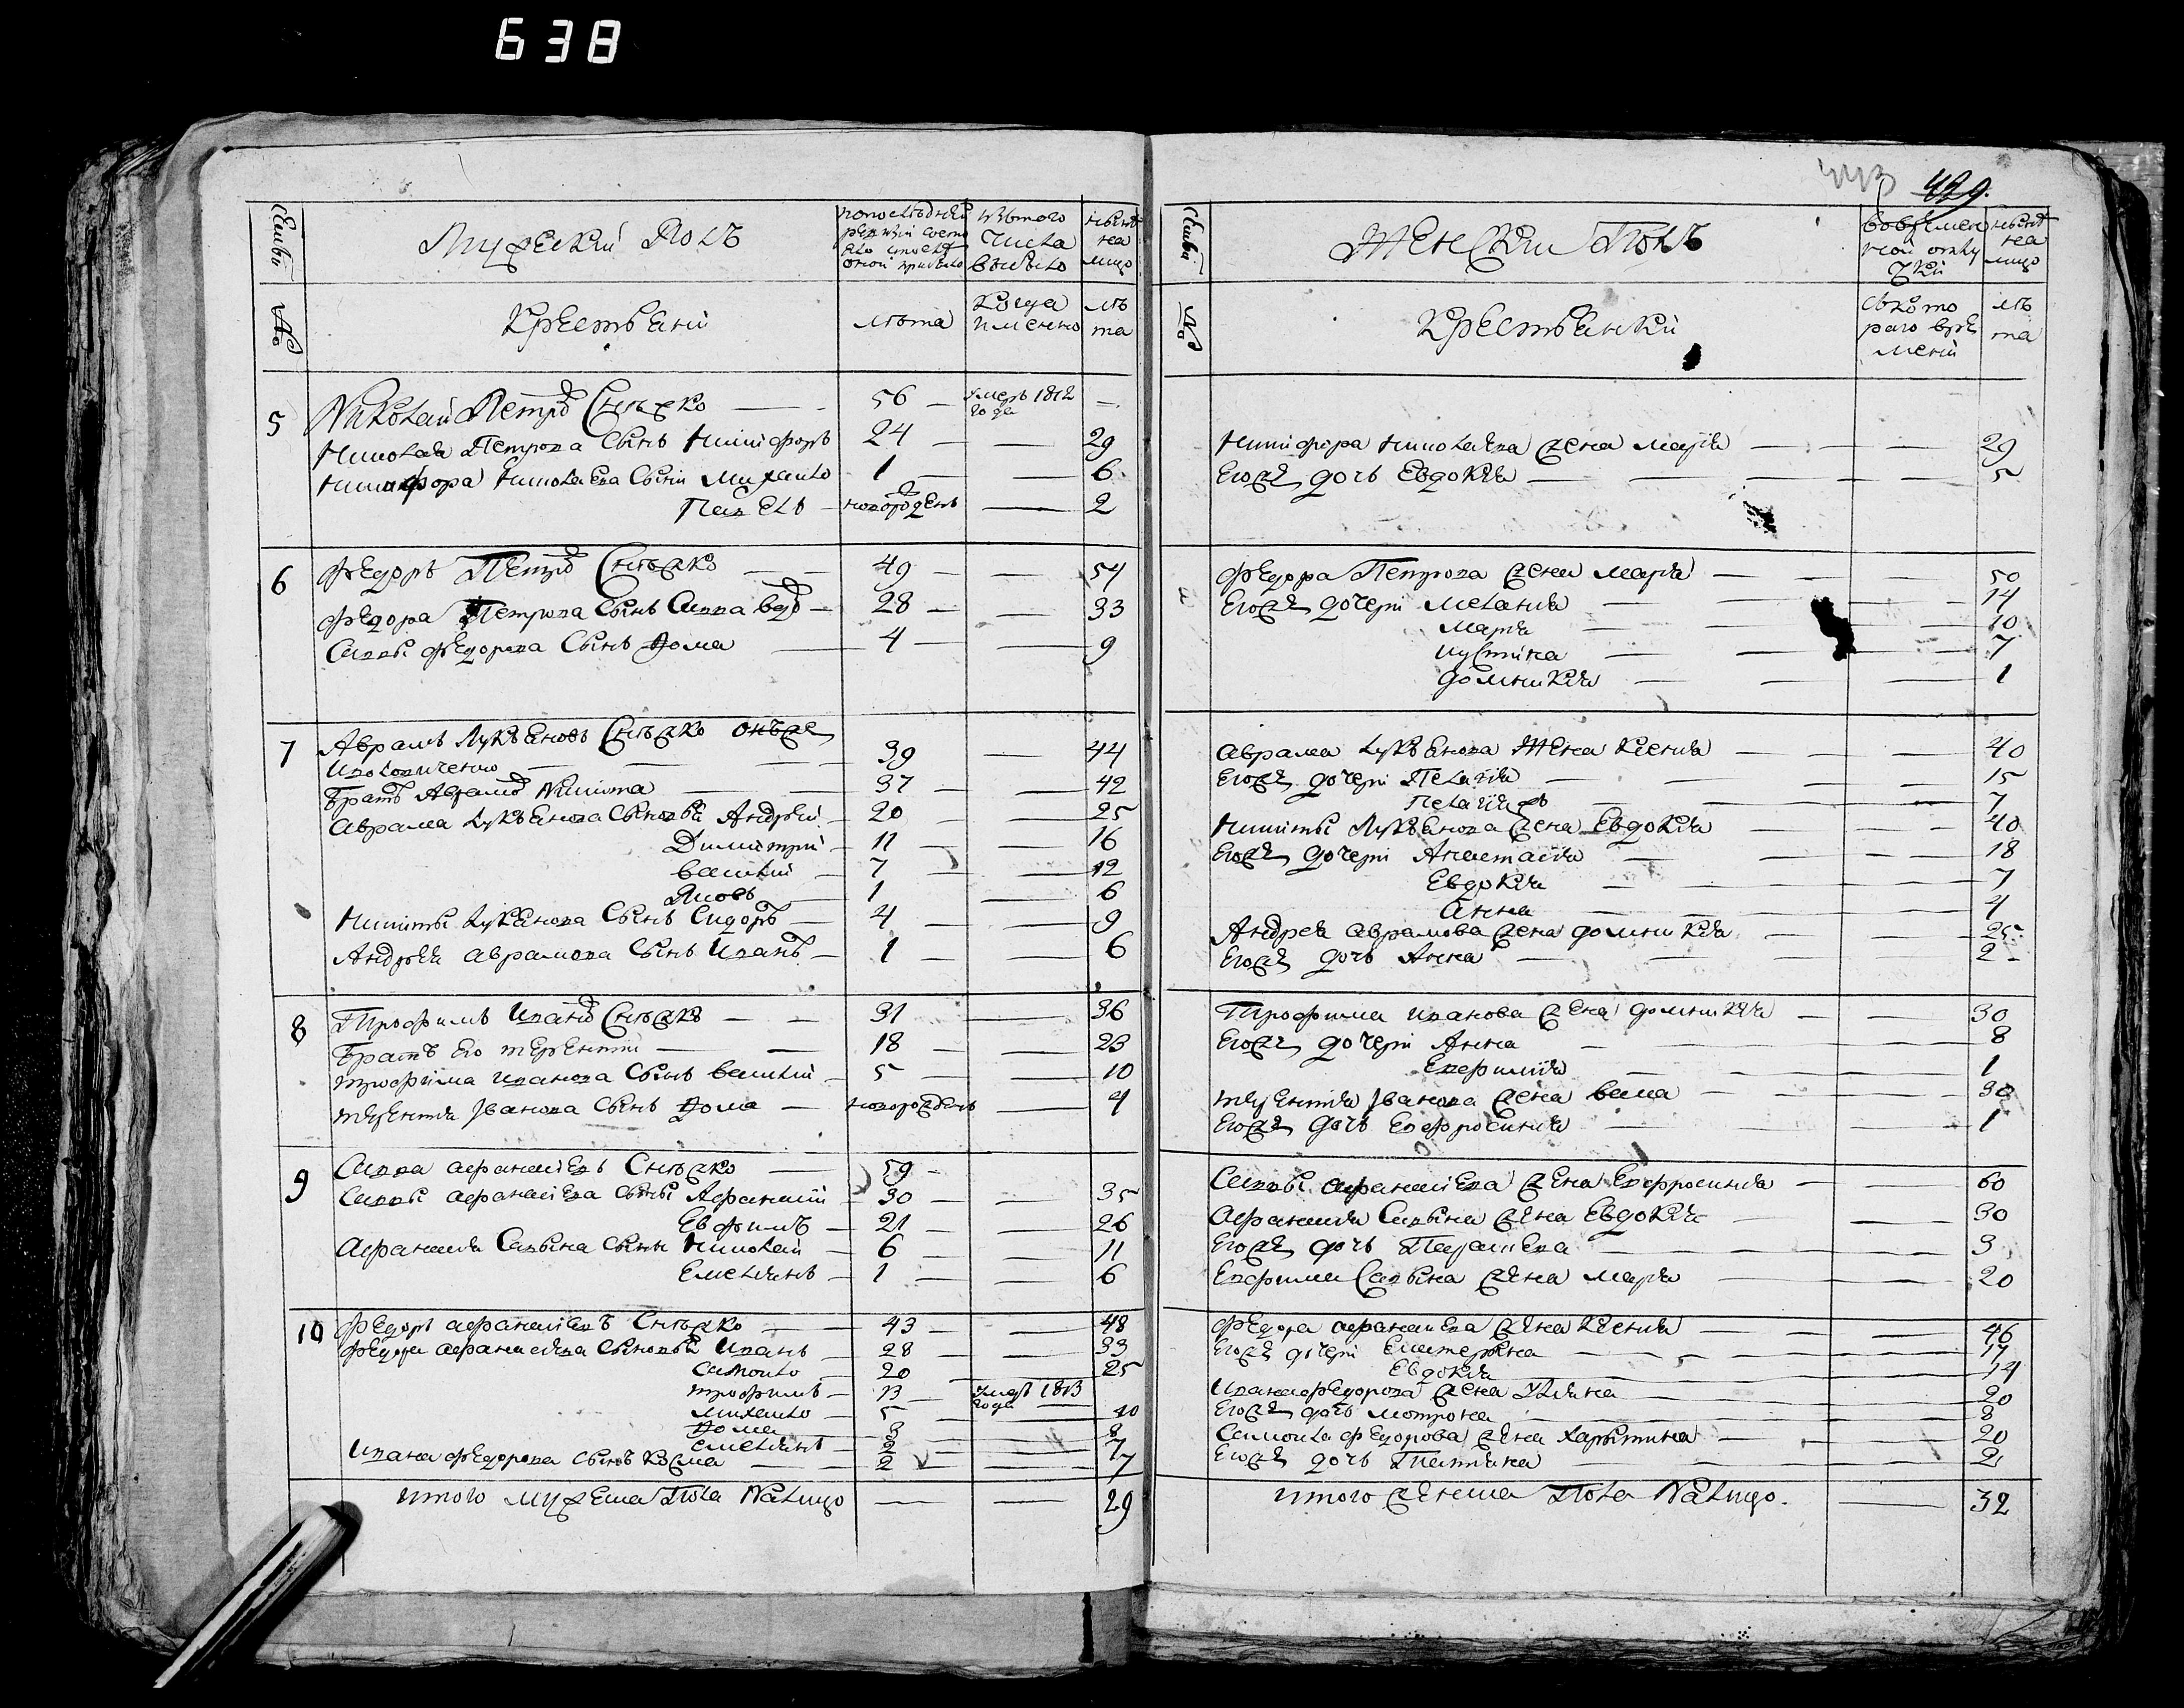 638
443 429.
Семьи
Мужеский Полъ
попоследней ревизии состояло и после оной прибыло
Изъ того числа выбыло
ныне на лицо
№
Крестьяни
лета
Когда имянно
лета
5 Николай Петровъ Снежко — 56 — умеръ 1812 года —
Николая Петрова Сынъ Никифоръ 24 — — 29
Никифора Николаева Сыни Михаило 1 — — 6
Павелъ — новорожденъ — 2
6 Федоръ Петровъ Снежко — 49 — — 54
Федора Петрова Сынъ Савва — 28 — — 33
Саввы Федорова Сынъ Фома — 4 — — 9
7 Аврамъ Лукьяновъ Снежко онъже
— 39 — 44
Братъ Аврамовъ Никита — 37 — — 42
Аврама Лукьянова Сыновья Андрей — 20 — — 25
Димитрий — 11 — — 16
Василий — 7 — — 12
Яковъ — 1 — — 6
Никиты Лукьянова Сынъ Сидоръ — 4 — — 9
Андрея Аврамова Сынъ Иванъ — 1 — — 6
8 Трофимъ Ивановъ Снежко — 31 — 36
Братъ его Терентий — 18 — — 23
Трофима Иванова Сынъ Василий — 5 — — 10
Терентия Иванова Сынъ Фома — новорожденъ — 4
9 Савва Афанасиевъ Снежко — 59 —
Саввы Афанасиева Сыны Афанасий — 30 — — 35
Евфимъ — 21 — — 26
Афанасия Савьина Сыны Николай — 6 — — 11
Емелианъ — 1 — — 6
10 Федоръ Афанасиевъ Снежко — 43 — — 48
Федора Афанасиева Сыновья Иванъ — 28 — — 33
Самоило — 20 — — 25
Трофимъ — 13 — умеръ 1813 года —
Михаило — 5 — — 10
Фома — 3 — — 8
Емелианъ — 2 — — 7
Ивана Федорова Сынъ Козма — 2 — — 7
итого мужеска Пола Налицо — — 29
Семьи
Женский Полъ
Вовременной отлучки
ныне на лицо
№
Крестьянски
съ котораго времени
лета
Никифора Николаева жена Мария — — — 29
Егоже дочь Евдокия — — — 5
Федора Петрова жена Мария — — — 50
Егоже дочери Мелания — — — 14
Мария — — — 10
Иустина — — — 7
Домникия — — — 1
Аврама Лукьянова Жена Ксения — — — 40
Егоже дочери Пелагия — — — 15
Пелагияжъ — — — 7
Никиты Лукьянова жена Евдокия — — — 40
Егоже дочери Анастасия — — — 18
Евдокия — — — 7
Анна — — — 4
Андрея Аврамова жена Домникия — — 25
Егоже дочь Анна — — — 2
Трофима Иванова жена Домникия — — 30
Егоже дочери Анна — — — 8
Евфимия — — — 1
Терентия Иванова жена Васса — — — 30
Егоже дочь Евфросиния — — — 1
Саввы Афанасиева жена Евфросиния — — 60
Афанасия Савьина жена Евдокия — — 30
Егоже дочь Парасиева — — — 3
Евфима Савьина жена Мария — — — 20
Федора Афанасиева жена Ксения — — — 46
Егоже дочери Екатерина — — — 17
Евдокия — — — 14
Ивана Федорова жена Улияна — — — 20
Егоже дочь Мотрона — — — 8
Самоила Федорова жена Харитина — — — 20
Егоже дочь Татияна — — — 2
итого женска Пола Налицо. — 32